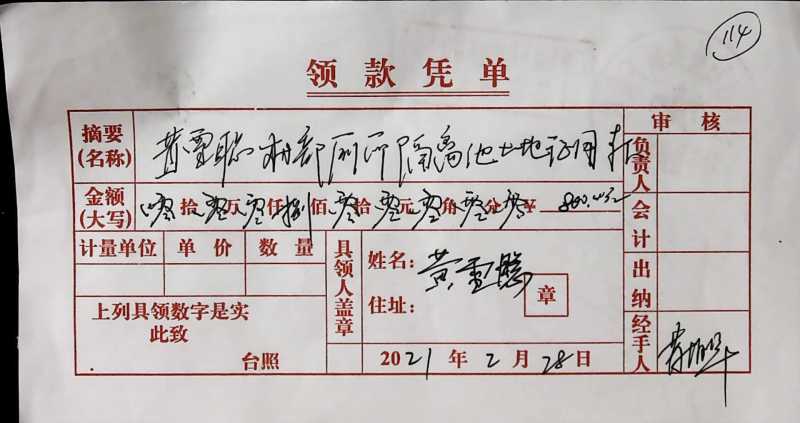 114
领款凭单
摘要 黄雪聪村部厕所隔离池土地征用款 审核
(名称) 负责人
金额 零拾零万零仟捌佰零拾零元零角零分 ¥ 800.00元
(大写) 会计
计量单位 单价 数量 具领人盖章 姓名:黄雪聪
章 出纳
上列具领数字是实 住址:
此致 经手人
台照 2021年2月28日